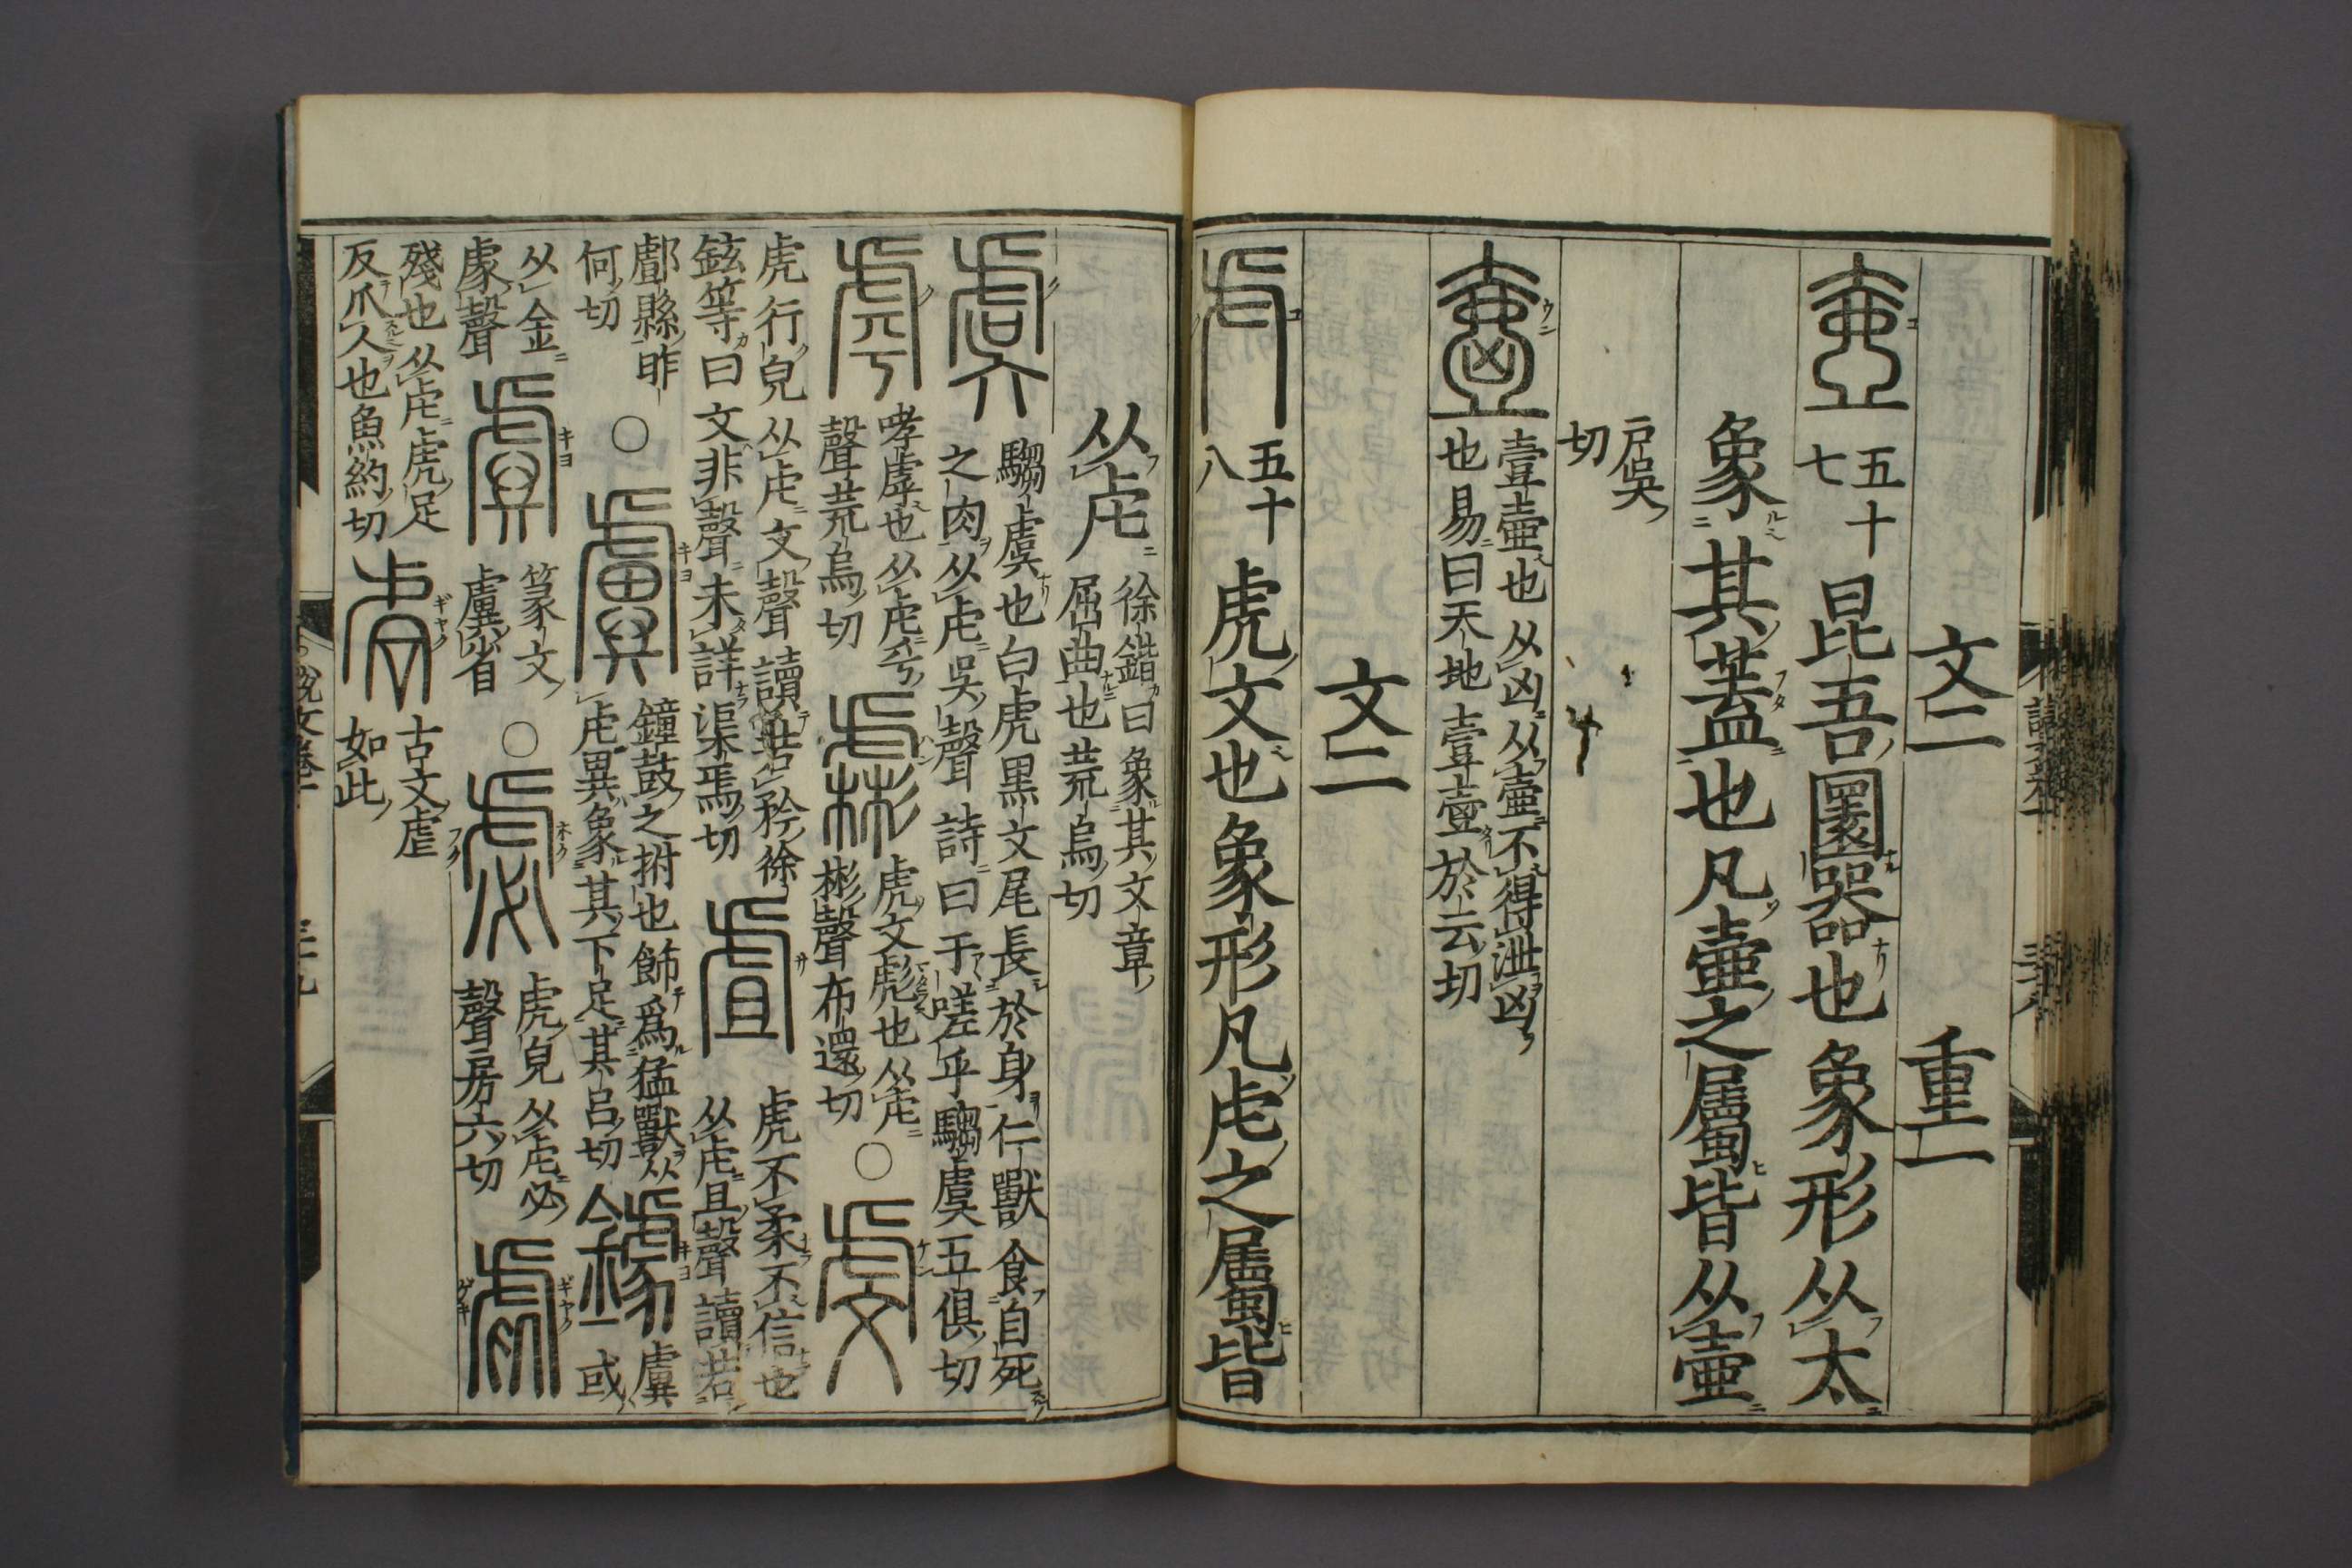 文二 重一
壺 五十七 昆吾圜器也象形从太
象其蓋也凡壺之屬皆从壺
戶吳
切
壹壺也从凶从壺不得泄凶
也易曰天地壹壺於云切
文二
虍 五十八 虎文也象形凡虍之屬皆
从虍
徐鍇曰象其文章
屈曲也荒烏切
虞
騶虞也白虎黑文尾長於身仁獸食自死
之肉从虍吳聲詩曰于嗟乎騶虞五俱切
虖
哮虖也从虍乎
聲荒烏切
虨
虎文彪也从虍
彬聲布還切
○ 虔
虎行皃从虍文聲讀若矜徐
鉉等曰文非聲未詳渠焉切
虘
虎不柔不信也
从虍且聲讀若
鄌縣昨
何切
○ 虡
鐘鼓之柎也飾爲猛獸从
虍異象其下足其呂切
鐻
虡
或
从金
豦聲
虡
篆文
虡省
○ 虙
虎皃从虍必
聲房六切
虐
殘也从虍虎足
反爪人也魚約切
古文虐
如此